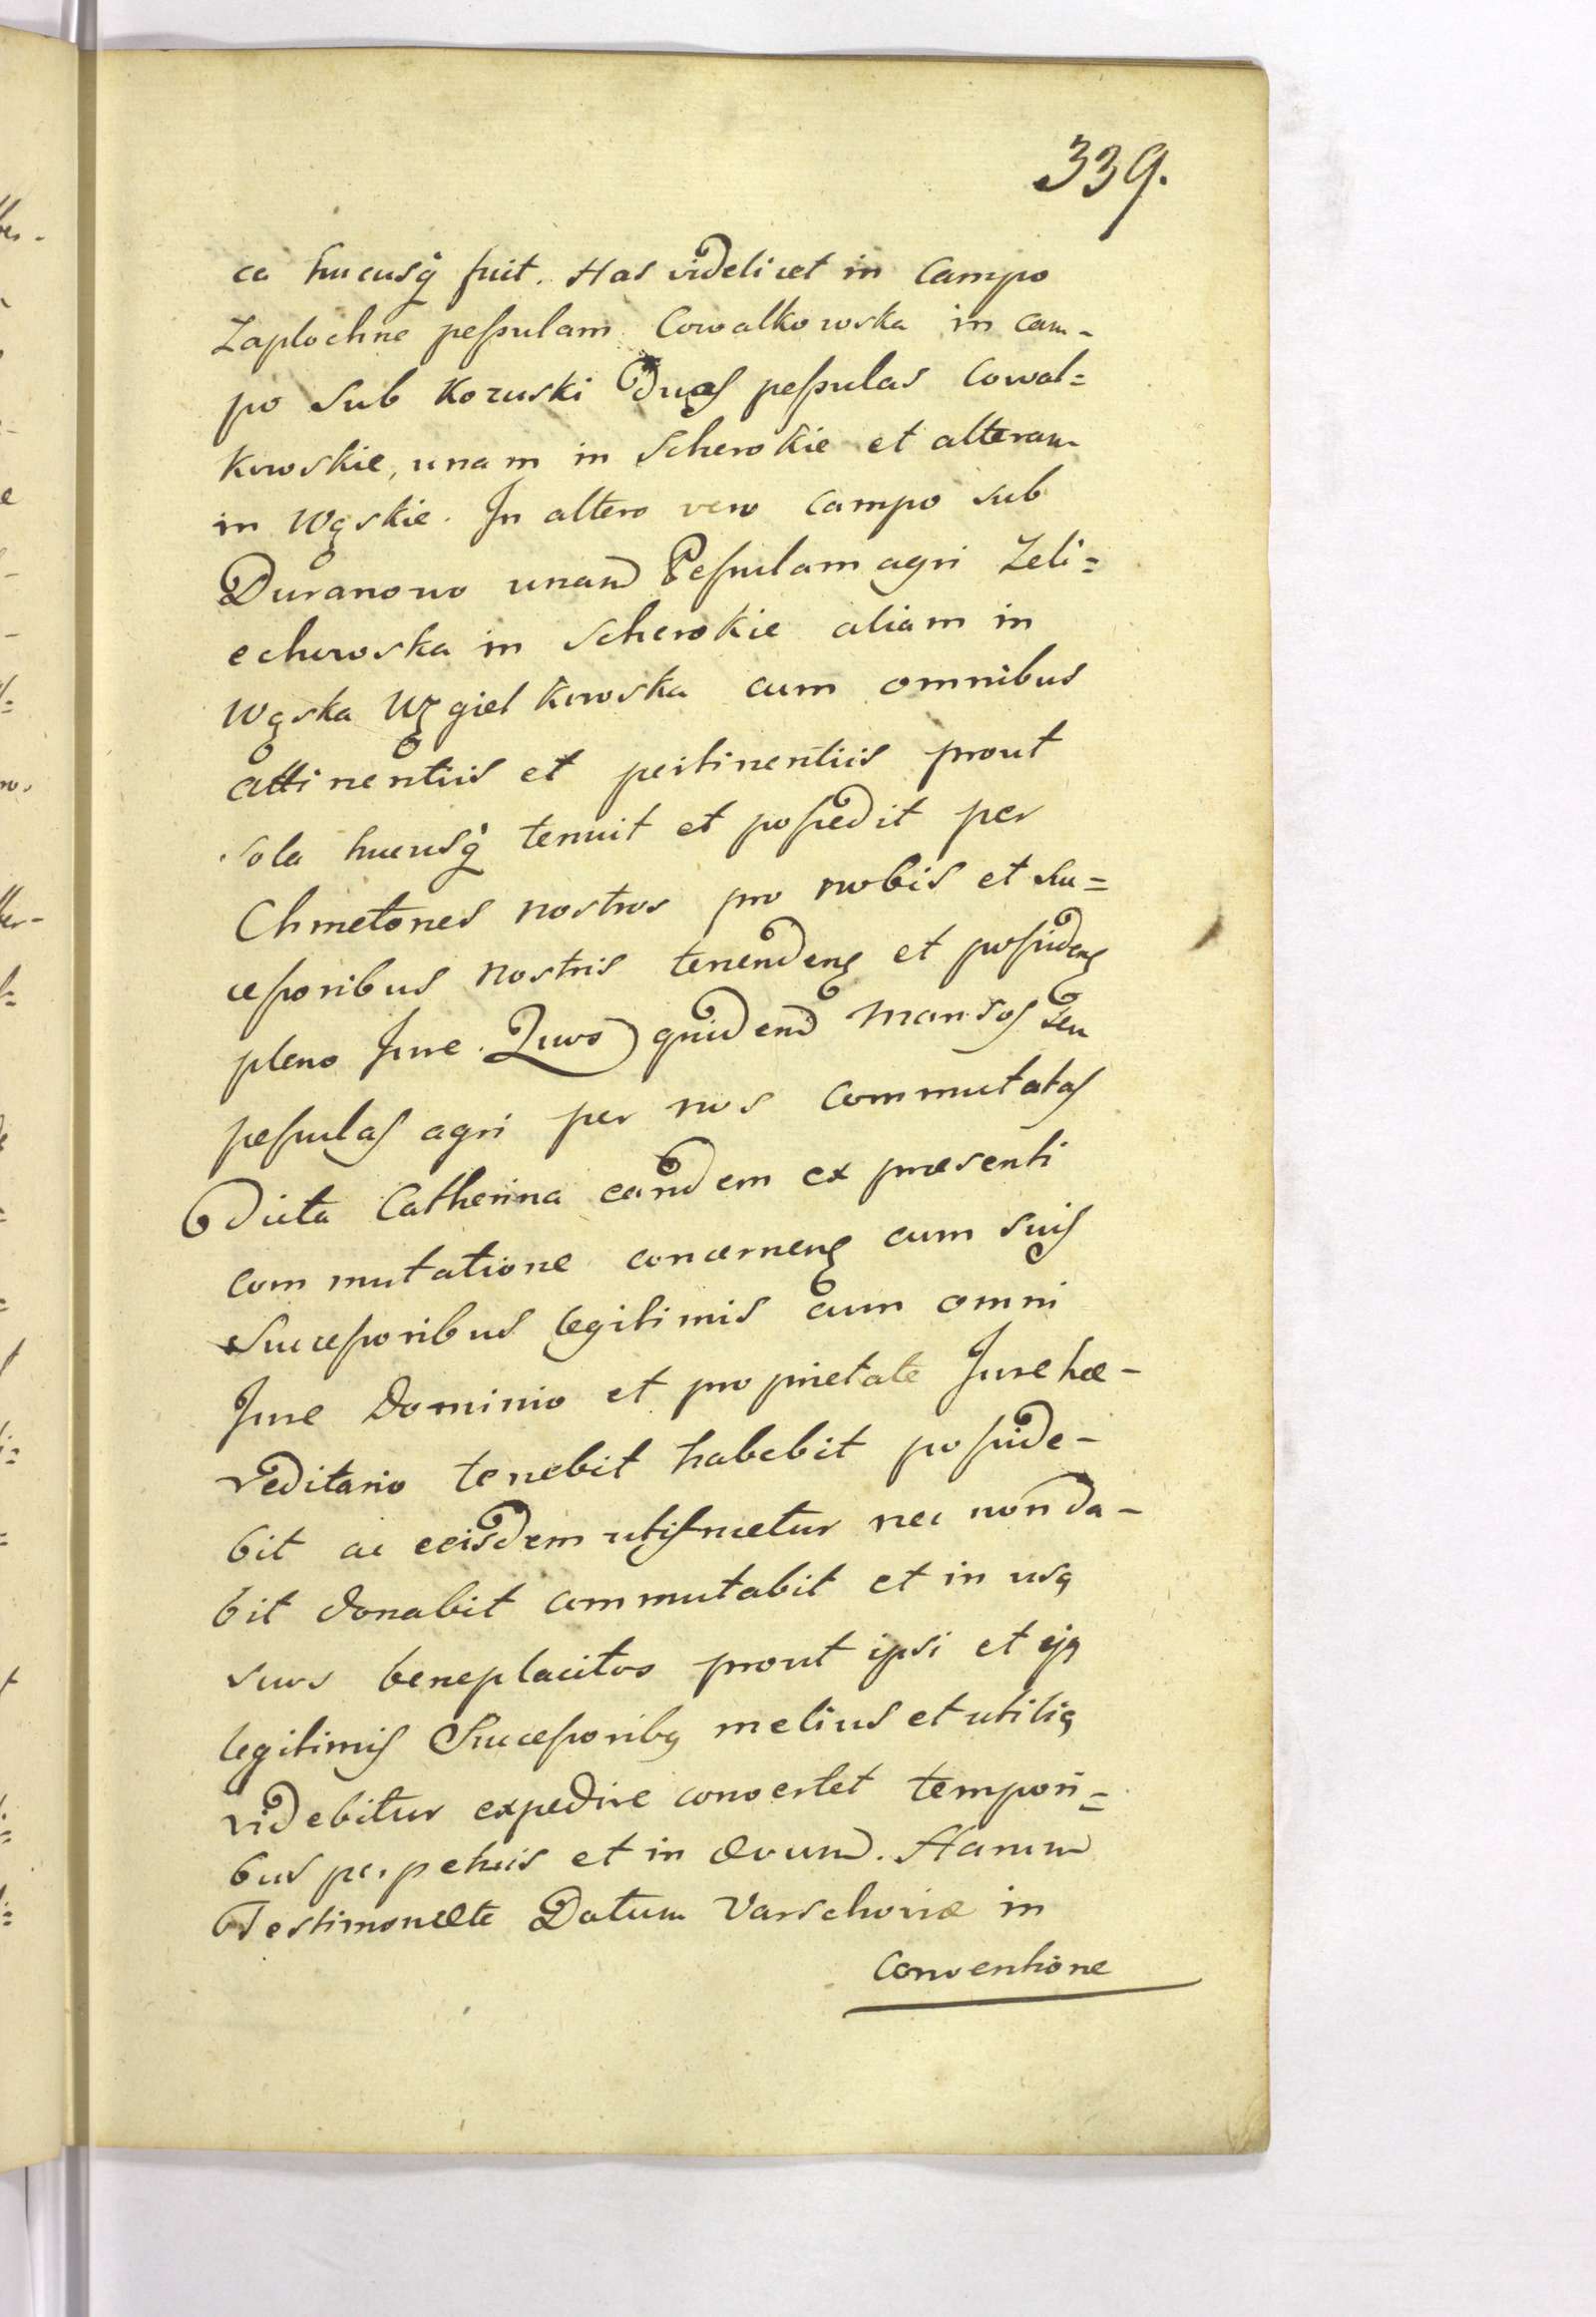 339.
ca hucusq̀ fuit. Has videlicet in Campo
Zaplochne peſsulam Cowalkowska in cam-
po sub Kozuski Duas peſsulas Cowal=
kowskie, unam in Scherokie et alteram
in Wąskie. In altero vero campo sub
Duranowo unam Peſsulam agri Zeli=
echowska in Scherokie aliam in
Wąska Węgielkowska cum omnibus
attinentiis et pertinentiis prout
sola hucusq̀ tenuit et poſsedit per
Chmetones nostros pro nobis et suc=
ceſsoribus nostris tenendens et poſsidens
pleno Jure. Quos quidem Mansos seu
peſsulas agri per nos commutatas
Dicta Catherina eandem ex præsenti
commutatione concernens cum suis
Succeſsoribus legitimis cum omni
Jure Dominio et proprietate Jure hæ-
reditario tenebit habebit poſside-
bit ac eeisdem utifruetur nec non da-
bit donabit commutabit et in usq
suos beneplacitos prout ipsi et ejq
legitimis Succeſsoribq melius et utiliq
videbitur expedire convertet tempori=
bus perpetuis et in ævum. Harum
Testimon̄ete Datum Varschoviæ in
Conventione